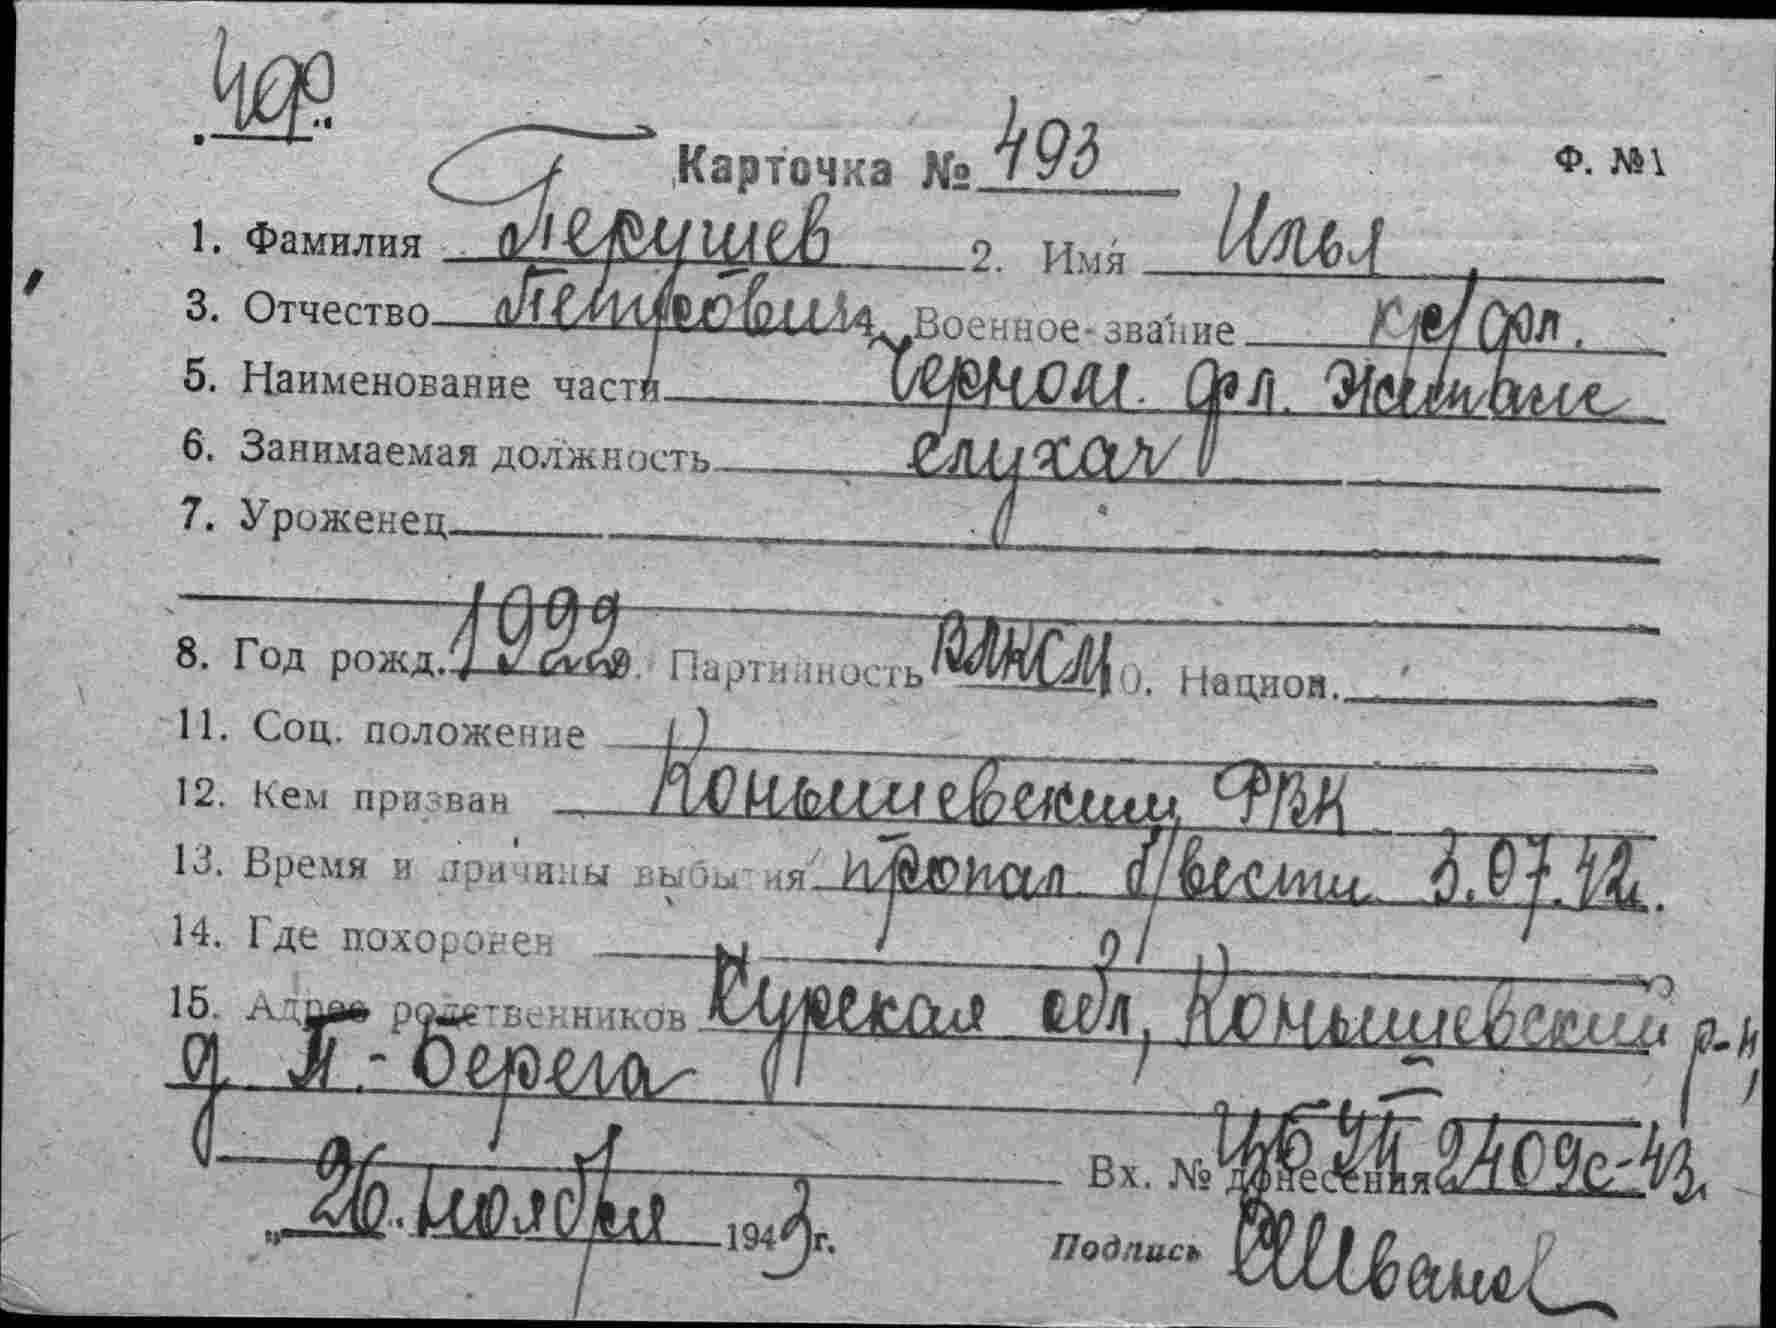 Чф.
Карточка № 493 Ф. №1
1. Фамилия Пекушев 2. Имя Илья
3. Отчество Петрович Военное звание кр/фл.
5. Наименование части Черном. фл. Экипаж
6. Занимаемая должность слухач
7. Уроженец
8. Год рожд. 1922 Партийность ВЛКСМ 0. Национ.
11. Соц. положение
12. Кем призван Конышевским РВК
13. Время и причины выбытия пропал б/вести 3.07.42г.
14. Где похоронен
15. Адрес родственников Курская обл, Конышевский р-н,
д П.-Берега
Вх. № донесения 2409с-43.
„26. ноября 1943г. Подпись Иванов